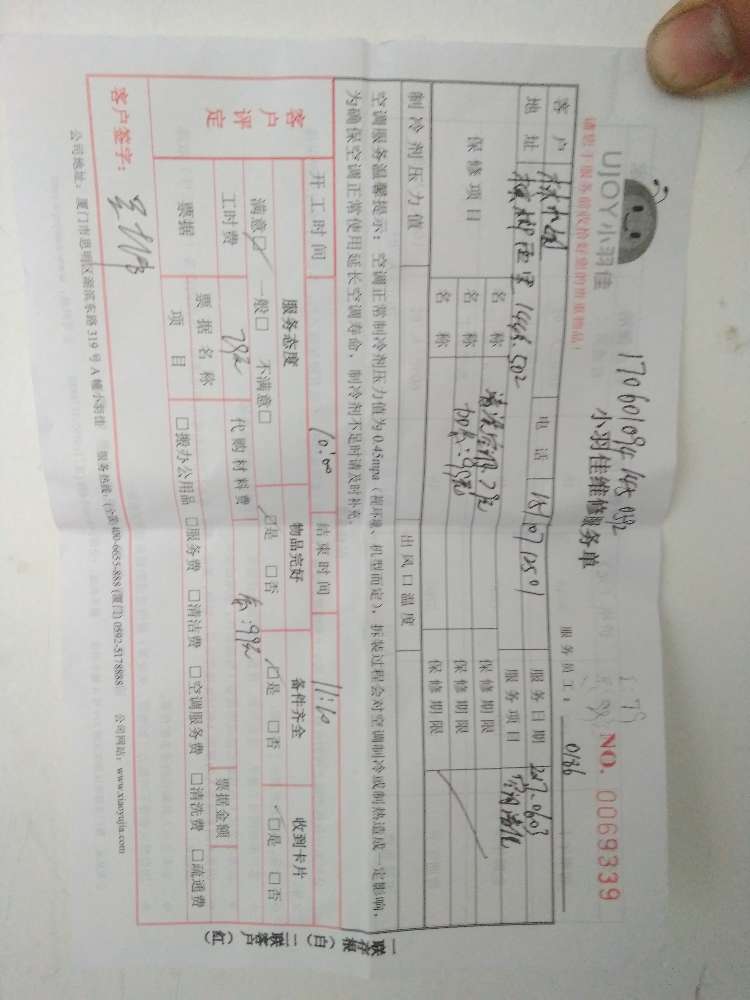 UJOY小羽佳
170601094145032
小羽佳维修服务单
NO. 0069339
请您于服务前收拾好您的贵重物品!
服务员工: 0186
客户
电话 15107112501
服务日期 2017.0603
地址
144#.502
服务项目 空调清洗
保修项目
名称
保修期限
名称 加氨:99元
保修期限
名称
保修期限
制冷剂压力值
出风口温度
空调服务温馨提示:空调正常制冷剂压力值为0.45mpa(视环境、机型而定),拆装过程会对空调制冷或制热造成一定影响,
为确保空调正常使用延长空调寿命,制冷剂不足时请及时补充。
客户评定
开工时间 10:00 结束时间 11:10
服务态度 物品完好 备件齐全 收到卡片
满意☑ 一般□ 不满意□ ☑是 □否 ☑是 □否 ☑是 □否
工时费 79元 代购材料费 :99元
票据 票据名称 票据金额
项目 □搬办公用品 □服务费 □清洁费 □空调服务费 □清洗费 □疏通费
客户签字:
公司地址:厦门市思明区湖滨东路319号A幢小羽佳 服务热线:(全国)400-6655-888 (厦门)0592-5178888 公司网站:www.xiaoyujia.com
一联存根(白)二联客户(红)